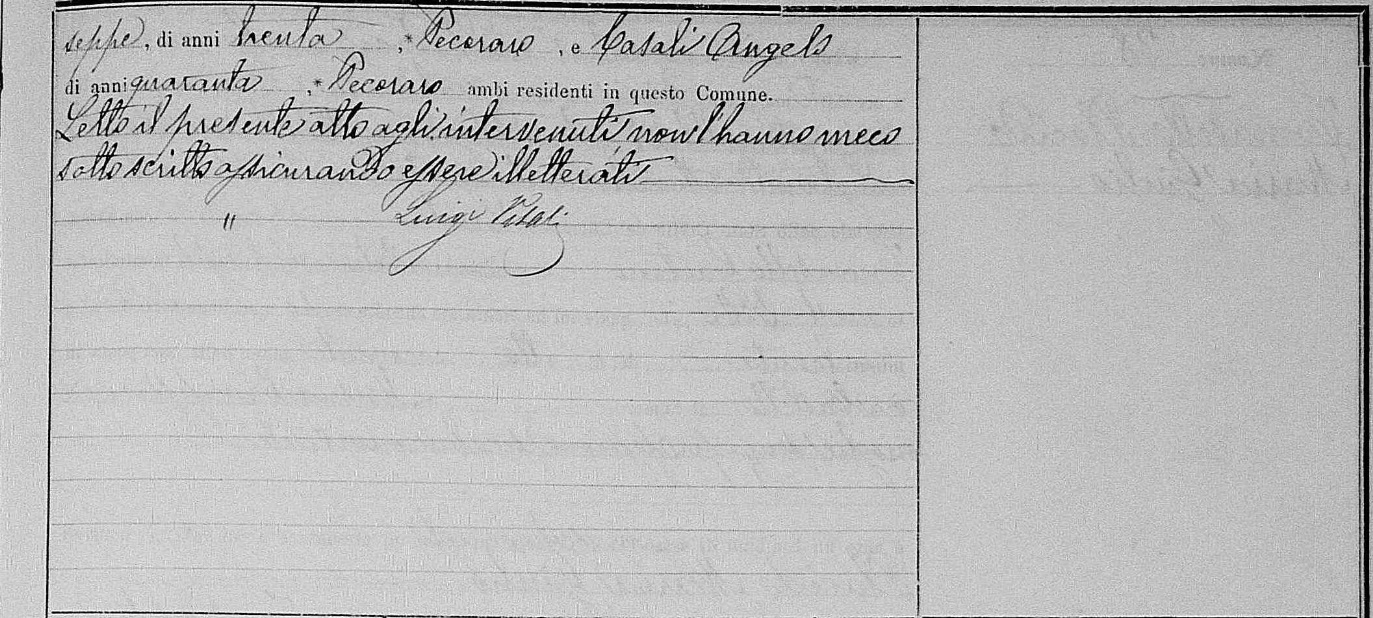 seppe, di anni trenta, Pecoraro, e Casali Angelo
di anni quaranta, Pecoraro ambi residenti in questo Comune.
Letto il presente atto agli intervenuti non l'hanno meco
sottoscritto assicurando essere illetterati
" Luigi Vitali